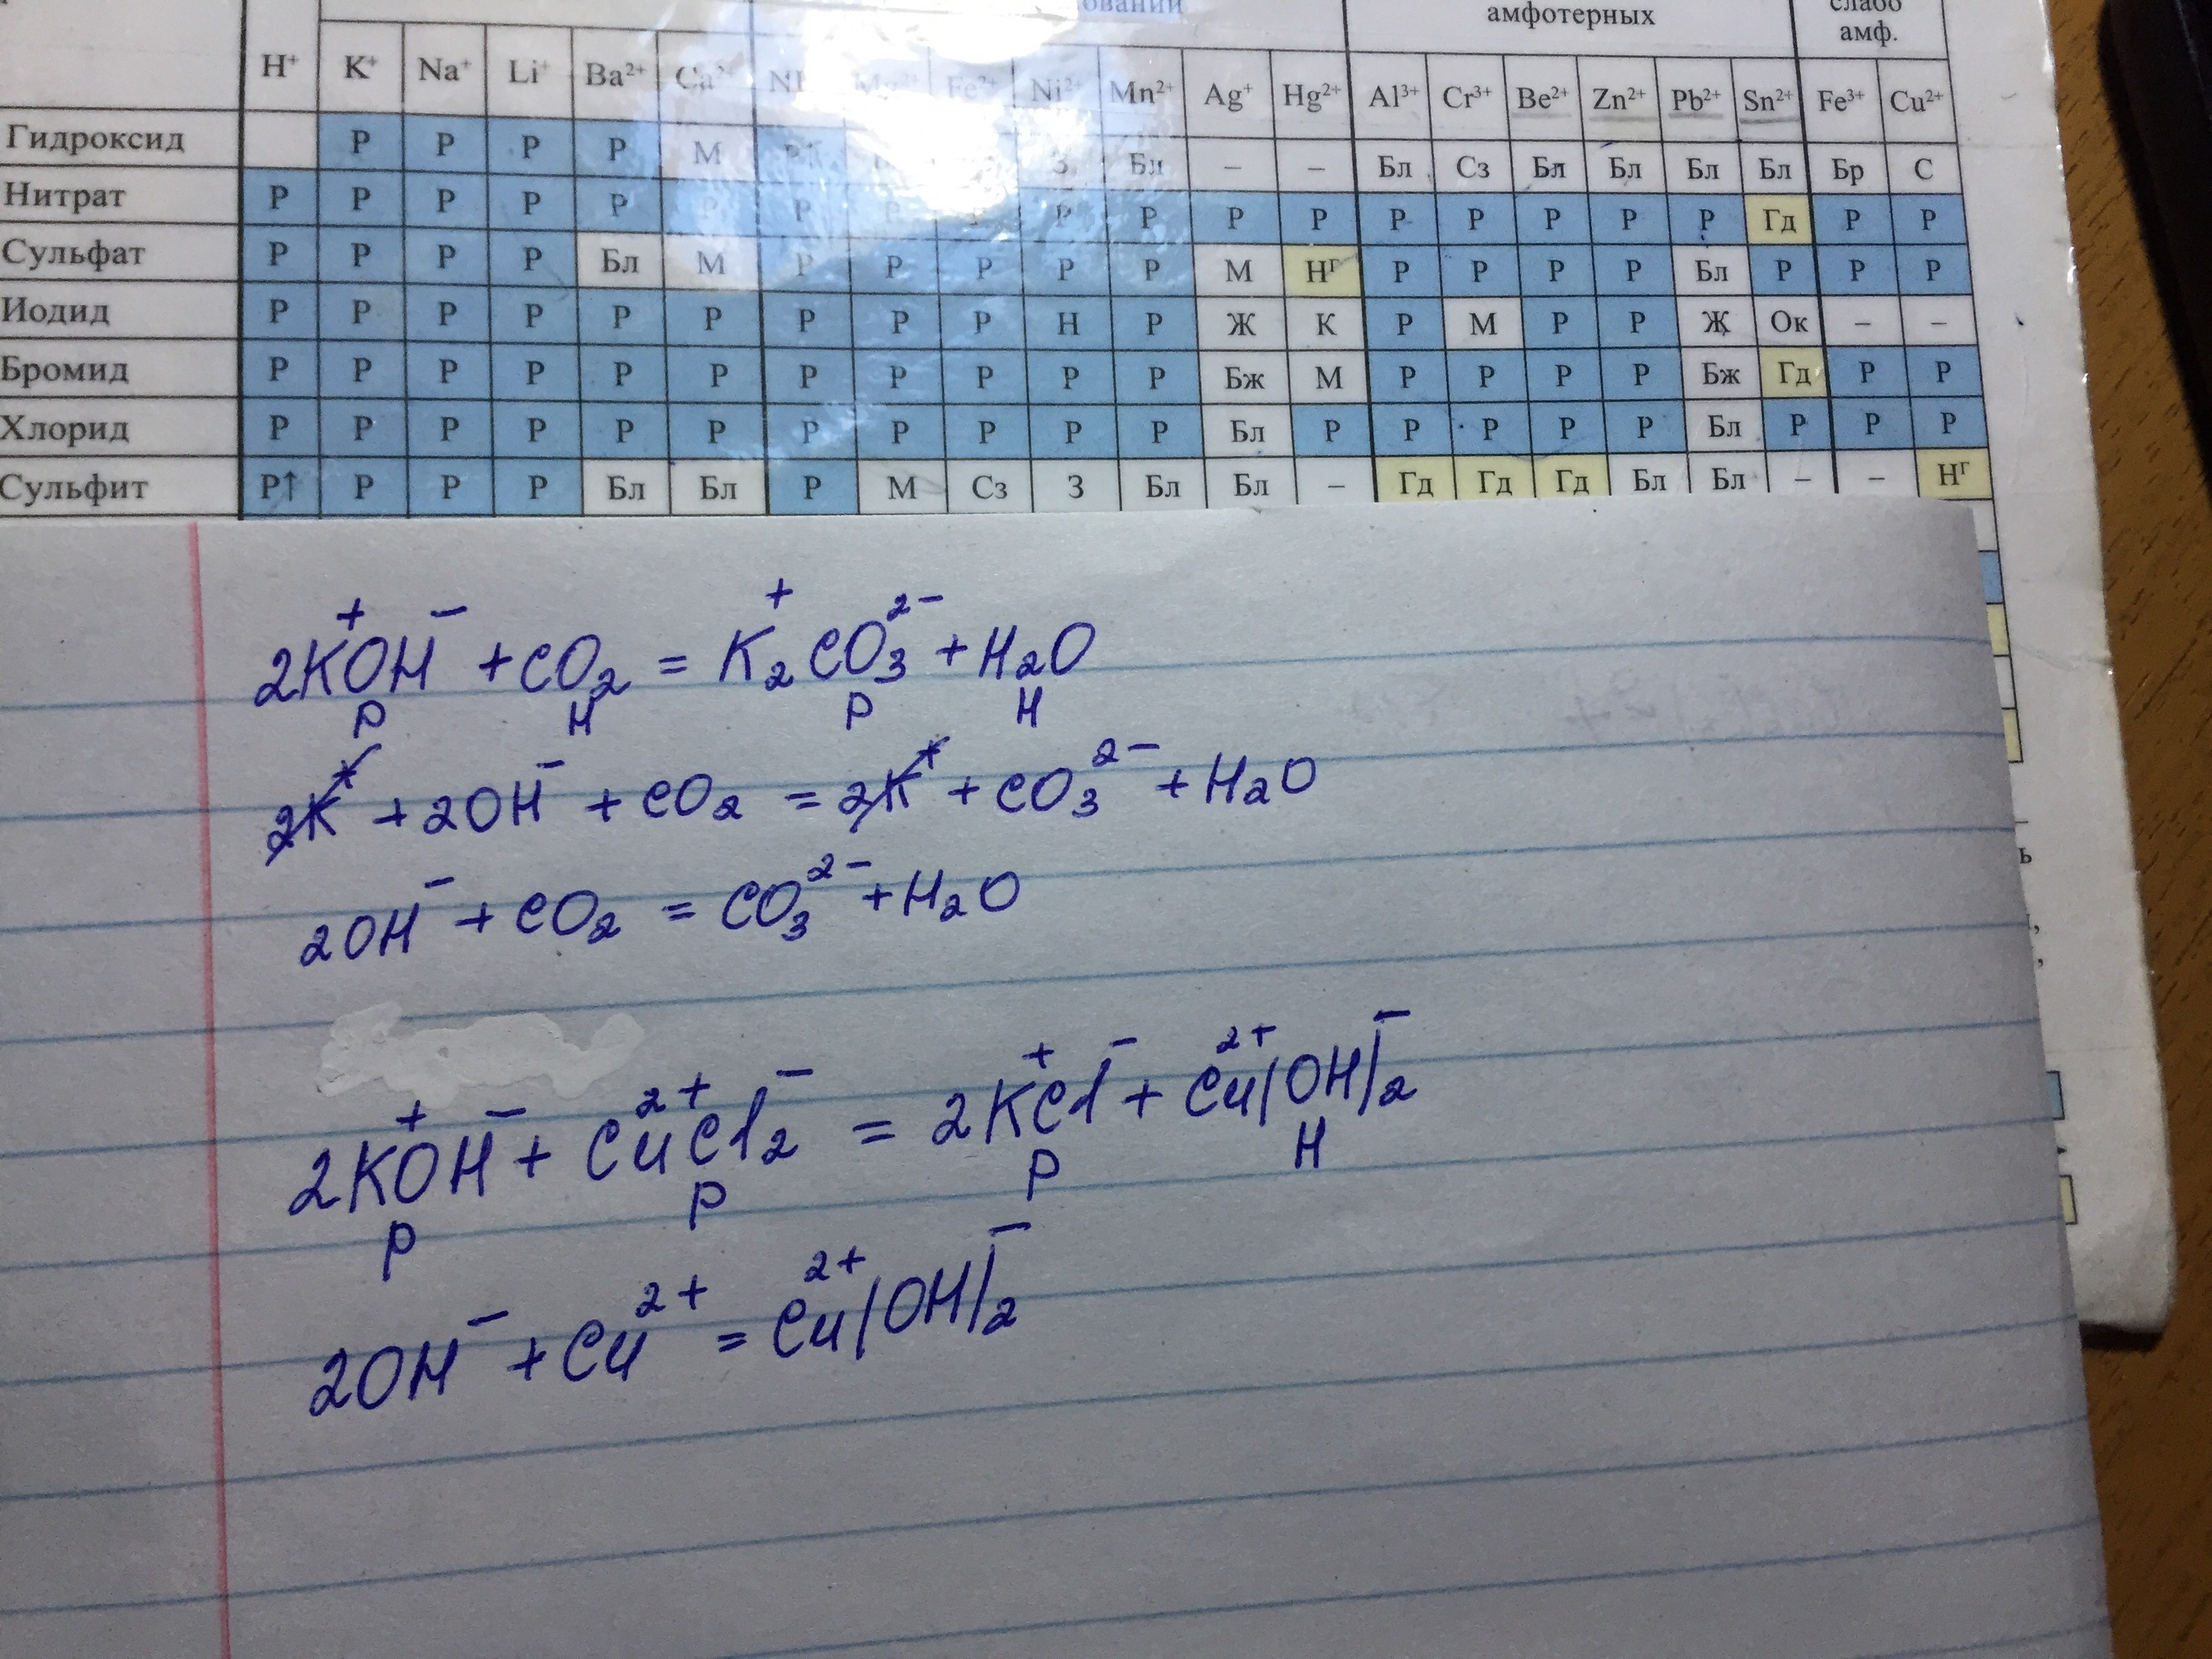 ований амфотерных слабо
амф.
H⁺ K⁺ Na⁺ Li⁺ Ba²⁺ Ca²⁺ Mg²⁺ Fe²⁺ Ni²⁺ Mn²⁺ Ag⁺ Hg²⁺ Al³⁺ Cr³⁺ Be²⁺ Zn²⁺ Pb²⁺ Sn²⁺ Fe³⁺ Cu²⁺
Гидроксид Р Р Р Р М З Бл – – Бл Сз Бл Бл Бл Бл Бр С
Нитрат Р Р Р Р Р Р Р Р Р Р Р Р Р Р Р Р Р Р Гд Р Р
Сульфат Р Р Р Р Бл М Р Р Р Р Р М Нᴦ Р Р Р Р Бл Р Р Р
Иодид Р Р Р Р Р Р Р Р Р Н Р Ж К Р М Р Р Ж Ок – –
Бромид Р Р Р Р Р Р Р Р Р Р Р Бж М Р Р Р Р Бж Гд Р Р
Хлорид Р Р Р Р Р Р Р Р Р Р Р Бл Р Р Р Р Р Бл Р Р Р
Сульфит Р↑ Р Р Р Бл Бл Р М Сз З Бл Бл – Гд Гд Гд Бл Бл – – Нᴦ
2K⁺OH⁻ + CO₂ = K₂⁺CO₃²⁻ + H₂O
Р Н Р Н
2K⁺ + 2OH⁻ + CO₂ = 2K⁺ + CO₃²⁻ + H₂O
2OH⁻ + CO₂ = CO₃²⁻ + H₂O
2K⁺OH⁻ + Cu²⁺Cl₂⁻ = 2K⁺Cl⁻ + Cu²⁺(OH)₂⁻
Р Р Р Н
2OH⁻ + Cu²⁺ = Cu²⁺(OH)₂⁻